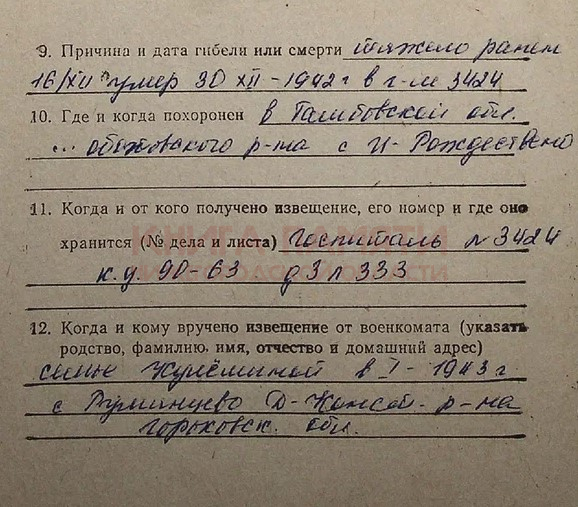 9. Причина и дата гибели или смерти тяжело ранен
16/XII умер 30 XII-1942 г в г-ле 3424
10. Где и когда похоронен в Тамбовской обл.
р-на с И- Рождествено
11. Когда и от кого получено извещение, его номер и где оно
хранится (№ дела и листа) Госпиталь № 3424
к.д. 90-63 д3 л 333
12. Когда и кому вручено извещение от военкомата (указать
родство, фамилию, имя, отчество и домашний адрес)
семье в I- 1943 г.
с Румянцево Д-Констан- р-на
горьковск. обл.
КНИГА ПАМЯТИ